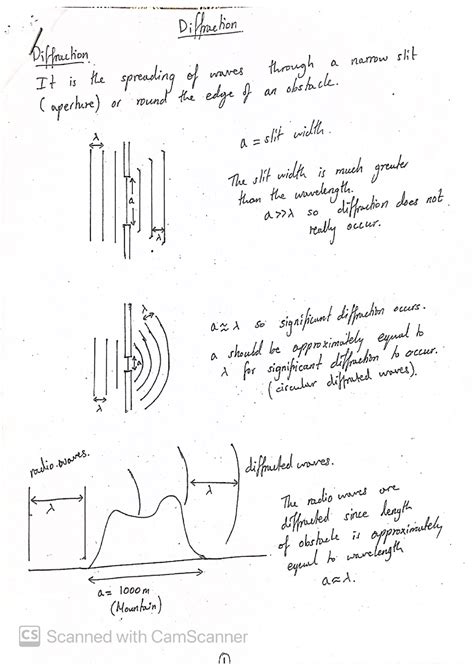 Diffraction
Diffraction
It is the spreading of waves through a narrow slit
(aperture) or round the edge of an obstacle.
λ
a = slit width.
The slit width is much greater
than the wavelength.
a>>λ so diffraction does not
really occur.
a
λ
λ
a≈λ so significant diffraction occurs.
a should be approximately equal to
λ for significant diffraction to occur.
(circular diffrated waves).
a
λ
radio waves.
diffracted waves.
λ
λ
The radio waves are
diffracted since length
of obstacle is approximately
equal to wavelength
a≈λ.
a= 1000m
(Mountain)
CS Scanned with CamScanner
1